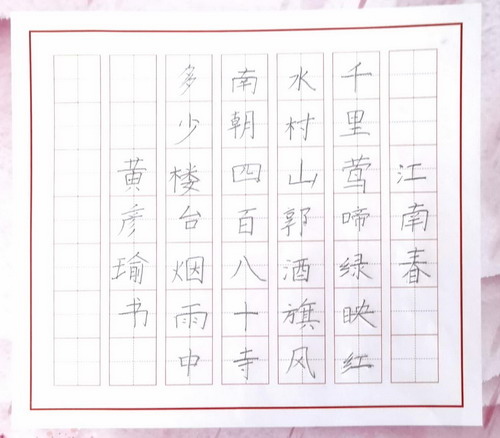 江南春
千里莺啼绿映红
水村山郭酒旗风
南朝四百八十寺
多少楼台烟雨中
黄彦瑜书